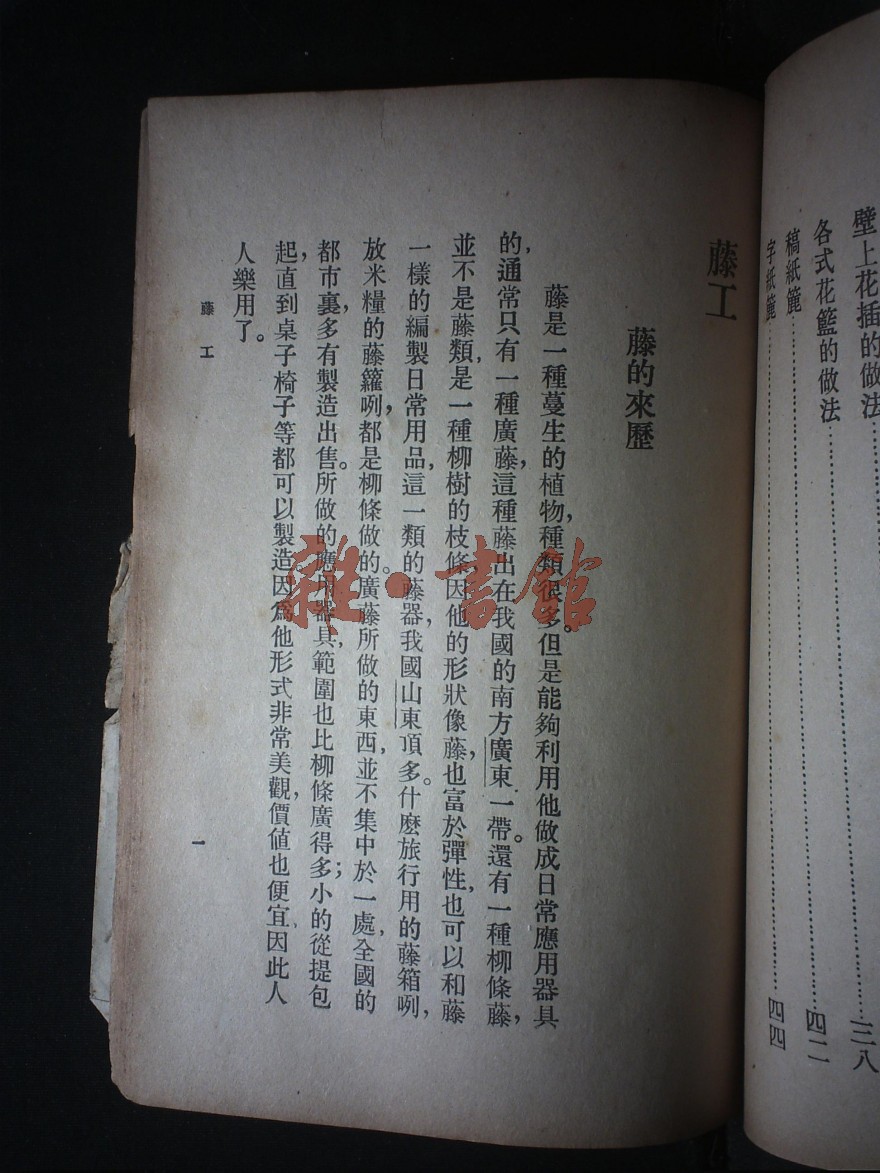 壁上花插的做法……三八
各式花籃的做法……四二
稿紙簏……四四
字紙簏……四四
藤工
藤的來歷
藤是一種蔓生的植物，種類很多。但是能夠利用他做成日常應用器具
的，通常只有一種廣藤，這種藤出在我國的南方廣東一帶。還有一種柳條藤，
並不是藤類，是一種柳樹的枝條，因他的形狀像藤，也富於彈性，也可以和藤
一樣的編製日常用品，這一類的藤器，我國山東頂多。什麽旅行用的藤箱咧，
放米糧的藤籮咧，都是柳條做的。廣藤所做的東西，並不集中於一處，全國的
都市裏，多有製造出售。所做的應用器具，範圍也比柳條廣得多；小的從提包
起，直到桌子椅子等都可以製造，因爲他形式非常美觀，價値也便宜，因此人
人樂用了。
藤工
一
雜·書館